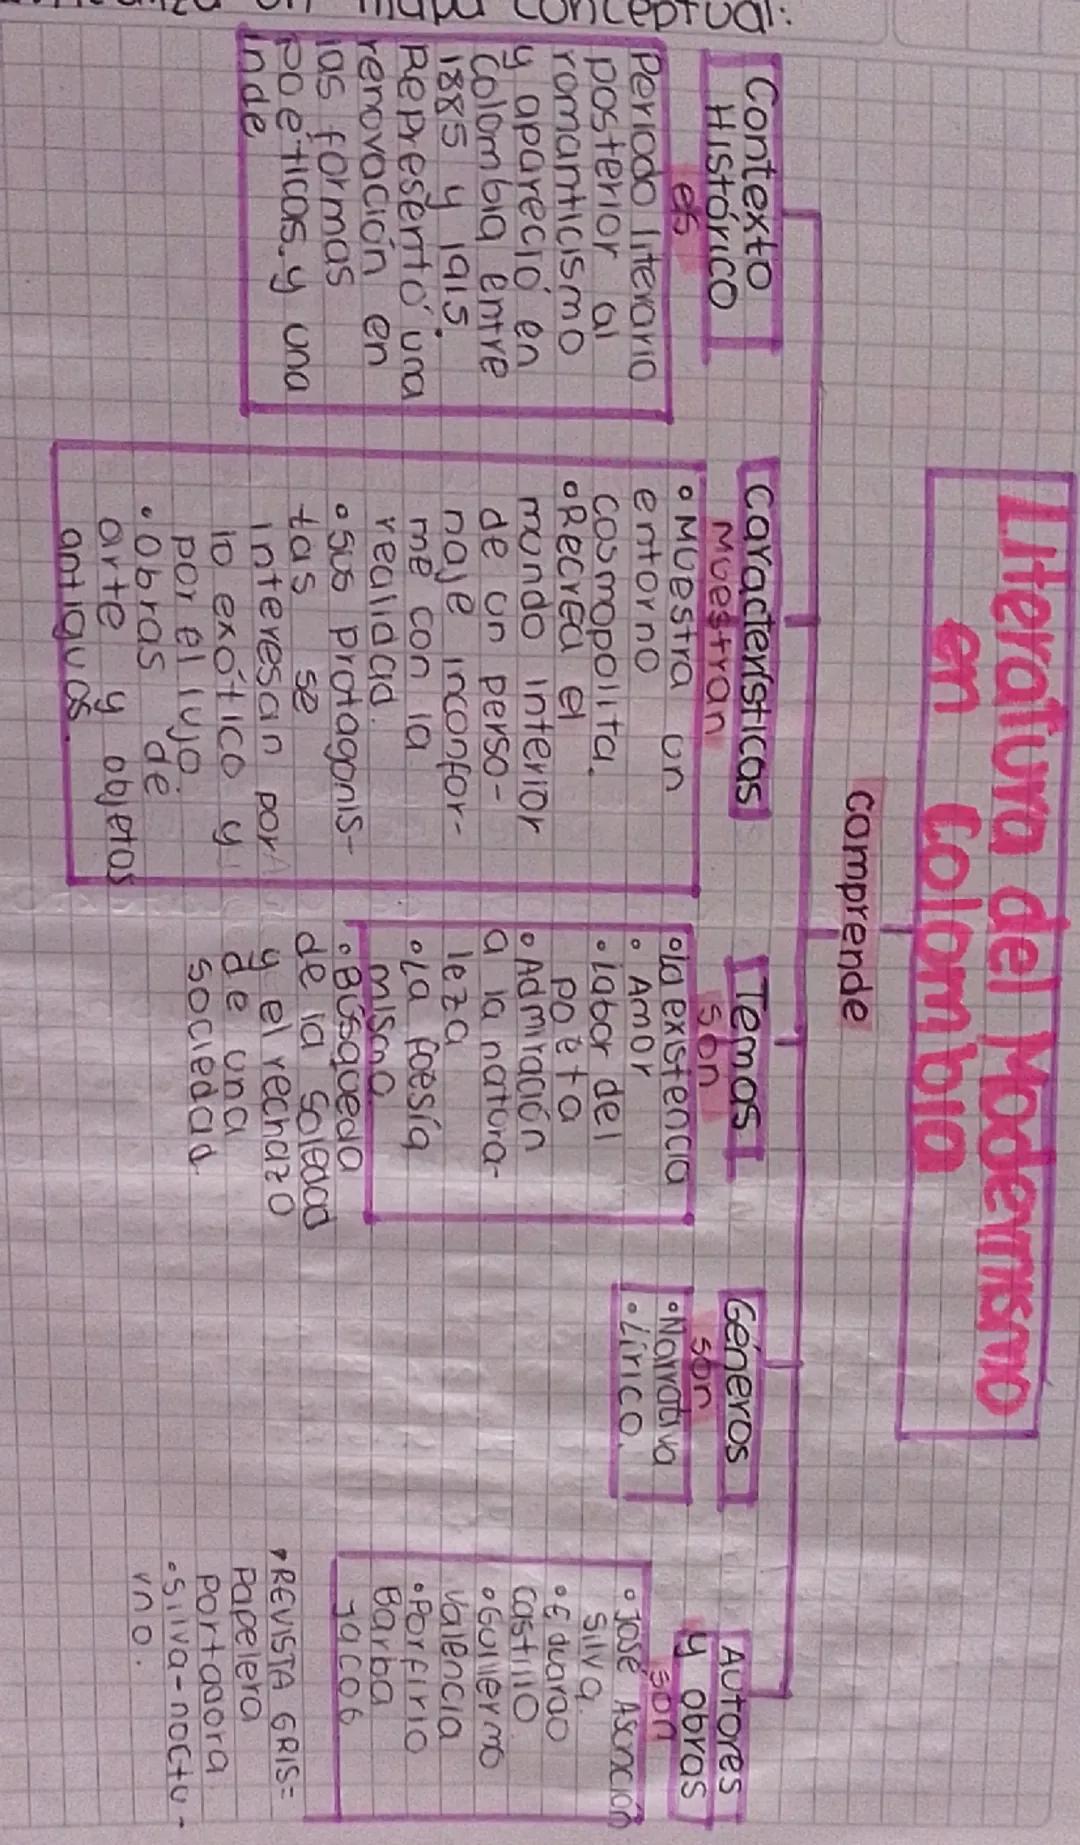 mapa conceptual:
Literatura del Modernismo
en Colombia
Comprende
Contexto
Histórico
es
Periodo literario
posterior al
romanticismo
y apareció en
Colombia entre
1885 y 1915.
Representó una
renovación en
las formas
poéticas y una
inde
Características
Muestran
• Muestra un
entorno
cosmopolita.
• Recrea el
mundo interior
de un perso-
naje inconfor-
me con la
realidad.
• sus protagonis-
tas se
interesan por
lo exótico y
por el lujo.
• obras de
arte y objetos
antiguos.
Temas
son
• la existencia
• Amor
• labor del
poeta
• Admiración
a la natura-
leza
• La poesía
misma
• Búsqueda
de la soledad
y el rechazo
de una
sociedad.
Géneros
son
• Narrativa
• Lírico.
Autores
y obras
son
• José Asunción
Silva.
• Eduardo
Castillo
• Guillermo
Valencia
• Porfirio
Barba
Jacob
• REVISTA GRIS=
Papelera
portadora
• Silva-noctu-
rno.